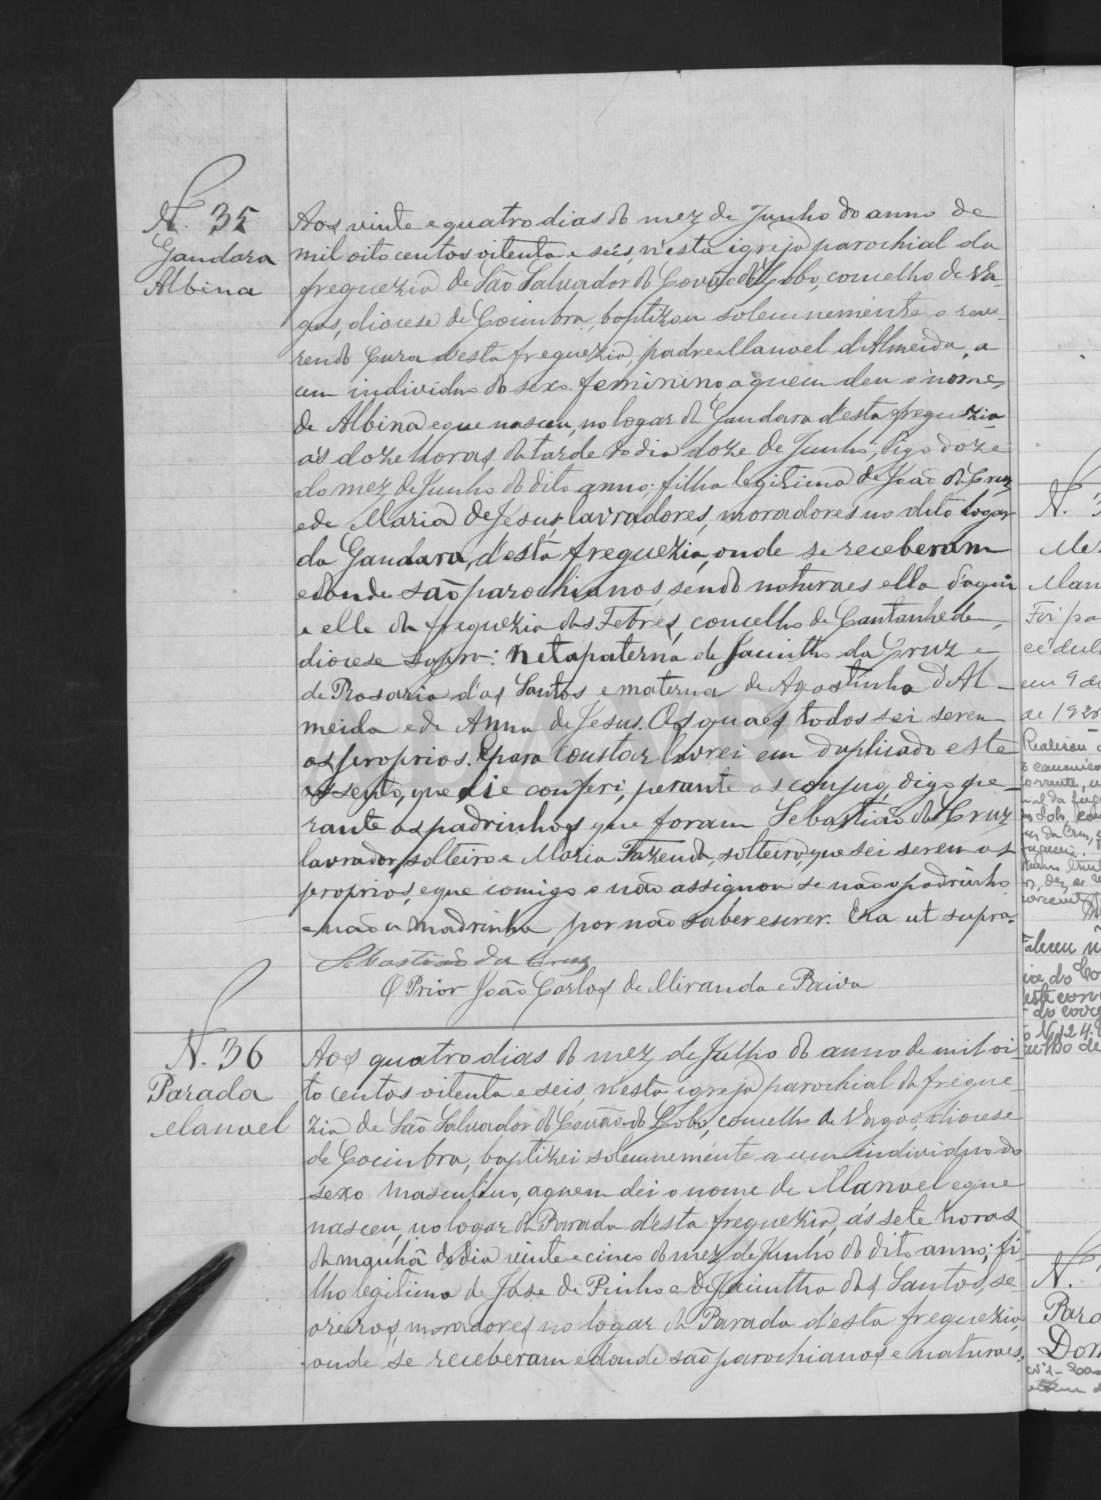 N. 35
Gandara
Albina
Aos vinte e quatro dias do mez de Junho do anno de
mil oito centos oitenta e seis, n'esta igreja parochial da
freguezia de São Salvador do Covão do Lobo, concelho de Va-
gos, diocese de Coimbra, baptizou solemnemente o reve-
rendo Cura d'esta freguezia, padre Manoel d'Almeida, a
um individuo do sexo feminino, a quem deu o nome,
de Albina e que nasceu, no logar da Gandara d'esta freguezia
ás doze horas da tarde do dia doze de Junho, digo doze
do mez de Junho do dito anno: filha legitima de João da Cruz,
e de Maria de Jesus lavradores, moradores no dito logar
da Gandara, d'esta freguezia, onde se receberam
e donde são parochianos, sendo naturaes ella d'aqui
e elle da freguezia das Febres, concelho de Cantanhede,
diocese supra: Neta paterna de Jacintho da Cruz e
de Rosaria dos Santos e materna de Agostinho d'Al-
meida e de Anna de Jesus. Os quaes todos sei serem
os proprios. E para constar lavrei em duplicado este
assento, que li e conferi, perante os conjug, digo pe-
rante os padrinhos que foram Sebastião da Cruz
lavrador, solteiro e Maria Fazenda, solteira, que sei serem os
proprios, e que comigo o não assignou se não o padrinho
e não a madrinha, por não saber escrever. Era ut supra.
Sebastião da Cruz
O Prior João Carlos de Miranda e Paiva
N. 36
Parada
Manoel
Aos quatro dias do mez de Julho do anno de mil oi-
to centos oitenta e seis, n'esta igreja parochial da fregue-
zia de São Salvador do Covão do Lobo, concelho de Vagos, diocese
de Coimbra, baptizei solemnemente a um individuo do
sexo masculino, a quem dei o nome de Manoel e que
nasceu, no logar da Parada d'esta freguezia, ás sete horas
da manhã do dia vinte e cinco do mez de Junho do dito anno; fi-
lho legitimo de José de Pinho e de Jacintha dos Santos, se-
areiros, moradores no logar da Parada d'esta freguezia,
onde se receberam e donde são parochianos e naturaes,
N.
Mano
Foi pa
cedul
em 9 de
de 192
Falleceu
N. 124
N.
Para
Dom